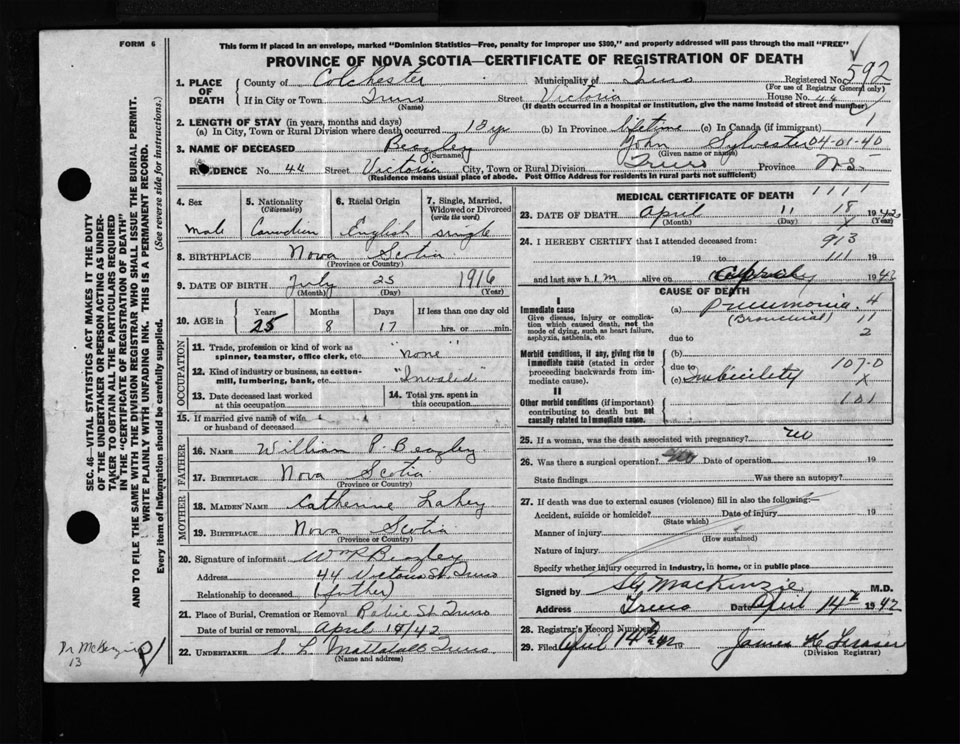 FORM 6
This form if placed in an envelope, marked "Dominion Statistics—Free, penalty for improper use $300," and properly addressed will pass through the mail "FREE"
PROVINCE OF NOVA SCOTIA—CERTIFICATE OF REGISTRATION OF DEATH
592
1. PLACE OF DEATH
County of Colchester Municipality of Truro Registered No.
(For use of Registrar General only)
If in City or Town Truro Street Victoria House No. 44
(Name) (If death occurred in a hospital or institution, give the name instead of street and number)
2. LENGTH OF STAY (in years, months and days)
(a) In City, Town or Rural Division where death occurred 18 yr (b) In Province lifetime (c) In Canada (if immigrant)
3. NAME OF DECEASED Beazley John Sylvester 04-01-40
(Surname) (Given name or names)
RESIDENCE No. 44 Street Victoria City, Town or Rural Division Truro Province N.S.
(Residence means usual place of abode. Post Office Address for residents in rural parts not sufficient)
4. Sex
Male
5. Nationality
(Citizenship)
Canadian
6. Racial Origin
English
7. Single, Married, Widowed or Divorced
(write the word)
Single
8. BIRTHPLACE Nova Scotia
(Province or Country)
9. DATE OF BIRTH July 25 1916
(Month) (Day) (Year)
10. AGE in
Years Months Days If less than one day old
25 8 17 hrs. or min.
OCCUPATION
11. Trade, profession or kind of work as spinner, teamster, office clerk, etc. "none"
12. Kind of industry or business, as cotton-mill, lumbering, bank, etc. "Invalid"
13. Date deceased last worked at this occupation
14. Total yrs. spent in this occupation
15. If married give name of wife or husband of deceased
FATHER
16. NAME William P. Beazley
17. BIRTHPLACE Nova Scotia
(Province or Country)
MOTHER
18. MAIDEN NAME Catherine Lahey
19. BIRTHPLACE Nova Scotia
(Province or Country)
20. Signature of informant Wm P Beazley
Address 44 Victoria St. Truro
Relationship to deceased (father)
21. Place of Burial, Cremation or Removal Robie St. Truro
Date of burial or removal April 14/42
22. UNDERTAKER S. L. Mattatall Truro
(Name and address)
MEDICAL CERTIFICATE OF DEATH 1111
23. DATE OF DEATH April 11 18 1942
(Month) (Day) (Year)
24. I HEREBY CERTIFY that I attended deceased from: 913
19 to 111 19
and last saw him alive on 1942
CAUSE OF DEATH
I
Immediate cause
Give disease, injury or complication which caused death, not the mode of dying, such as heart failure, asphyxia, asthenia, etc
(a) Pneumonia 4
(Bronchial) 11
due to 2
Morbid conditions, if any, giving rise to immediate cause (stated in order proceeding backwards from immediate cause).
(b)
due to 107-0
(c) Imbecility X
II
Other morbid conditions (if important) contributing to death but not causally related to immediate cause.
101
25. If a woman, was the death associated with pregnancy? no
26. Was there a surgical operation? no Date of operation 19
State findings Was there an autopsy?
27. If death was due to external causes (violence) fill in also the following:—
Accident, suicide or homicide? Date of injury 19
(State which)
Manner of injury
(How sustained)
Nature of injury
Specify whether injury occurred in industry, in home, or in public place
Signed by MacKinzie M.D.
Address Truro Date April 14th 1942
28. Registrar's Record Number
29. Filed April 14th 42 19 James H. Fraser
(Division Registrar)
SEC. 46—VITAL STATISTICS ACT MAKES IT THE DUTY
OF THE UNDERTAKER OR PERSON ACTING AS UNDERTAKER TO OBTAIN ALL THE PARTICULARS REQUIRED
IN THE "CERTIFICATE OF REGISTRATION OF DEATH"
AND TO FILE THE SAME WITH THE DIVISION REGISTRAR WHO SHALL ISSUE THE BURIAL PERMIT.
WRITE PLAINLY WITH UNFADING INK. THIS IS A PERMANENT RECORD.
Every item of Information should be carefully supplied. (See reverse side for instructions.)
13